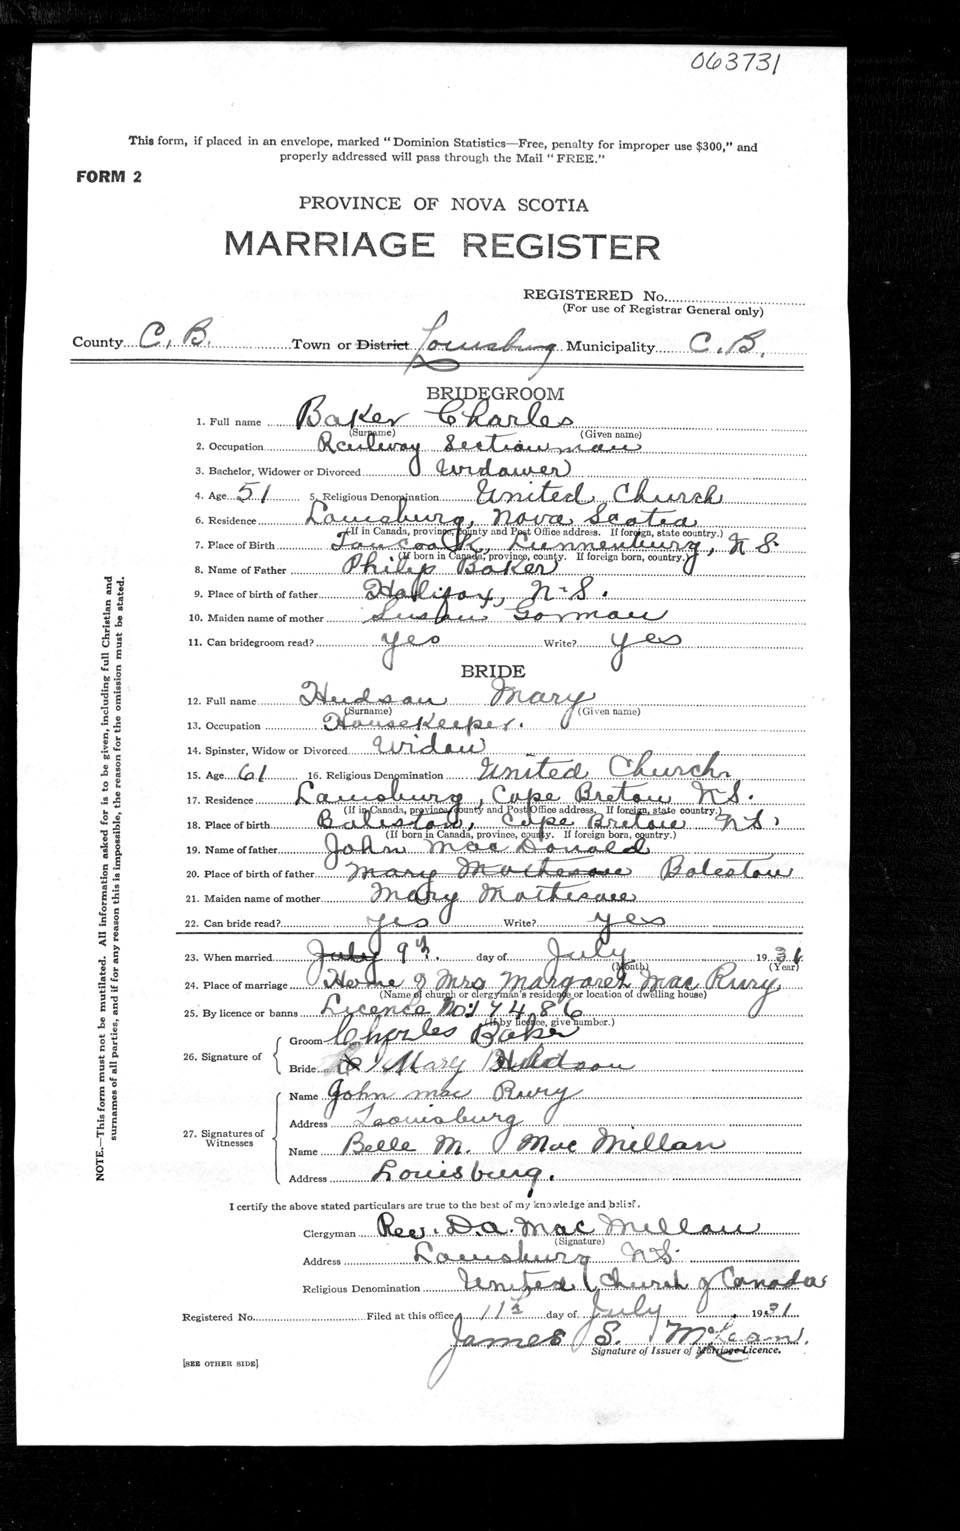 063731
This form, if placed in an envelope, marked "Dominion Statistics—Free, penalty for improper use $300," and
properly addressed will pass through the Mail "FREE."
FORM 2
PROVINCE OF NOVA SCOTIA
MARRIAGE REGISTER
REGISTERED No.
(For use of Registrar General only)
County C. B. Town or District Louisburg Municipality C. B.
BRIDEGROOM
1. Full name Baker Charles
(Surname) (Given name)
2. Occupation Railway Sectionman
3. Bachelor, Widower or Divorced Widower
4. Age 51 5. Religious Denomination United Church
6. Residence Louisburg, Nova Scotia
(If in Canada, province, county and Post Office address. If foreign, state country.)
7. Place of Birth Tancook, Lunnenburg, N S.
(If born in Canada, province, county. If foreign born, country.)
8. Name of Father Philip Baker
9. Place of birth of father Halifax, N. S.
10. Maiden name of mother Gorman
11. Can bridegroom read? yes Write? yes
BRIDE
12. Full name Hudson Mary
(Surname) (Given name)
13. Occupation Housekeeper.
14. Spinster, Widow or Divorced Widow
15. Age 61 16. Religious Denomination United Church
17. Residence Louisburg, Cape Breton N S.
(If in Canada, province, county and Post Office address. If foreign, state country.)
18. Place of birth Baleston, Cape Breton N S.
(If born in Canada, province, county. If foreign born, country.)
19. Name of father John Mac Donald
20. Place of birth of father Mary Matheson Baleston
21. Maiden name of mother Mary Matheson
22. Can bride read? yes Write? yes
23. When married July 9th. day of July 1931
(Month) (Year)
24. Place of marriage Home of Mrs Margaret Mac Rury
(Name of church or clergyman's residence or location of dwelling house)
25. By licence or banns Licence No. 17486
(If by licence, give number.)
26. Signature of
Groom Charles Baker
Bride Mary Hudson
27. Signatures of Witnesses
Name John Mac Rury
Address Louisburg
Name Belle M. Mac Millan
Address Louisburg.
I certify the above stated particulars are true to the best of my knowledge and belief.
Clergyman Rev. D. A. Mac Millan
(Signature)
Address Louisburg N S.
Religious Denomination United Church of Canada
Registered No. Filed at this office 11th day of July 1931
James S. McLean.
Signature of Issuer of Marriage Licence.
[SEE OTHER SIDE]
NOTE.—This form must not be mutilated. All information asked for is to be given, including full Christian and
surnames of all parties, and if for any reason this is impossible, the reason for the omission must be stated.